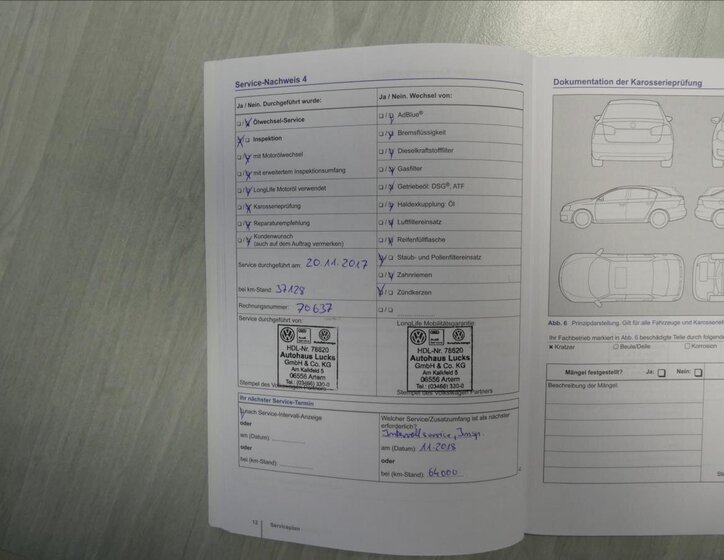 Service-Nachweis 4
Ja / Nein. Durchgeführt wurde:
Ölwechsel-Service
Inspektion
mit Motorölwechsel
mit erweitertem Inspektionsumfang
LongLife Motoröl verwendet
Karosserieprüfung
Reparaturempfehlung
Kundenwunsch
(auch auf dem Auftrag vermerken)
Service durchgeführt am: 20.11.2017
bei km-Stand: 37128
Rechnungsnummer: 70637
Service durchgeführt von:
HDL-Nr. 78620
Autohaus Lucks
GmbH & Co. KG
Am Kalkfeld 5
06556 Artern
Tel.: (03466) 330-0
Stempel des Volkswagen Partners
Ja / Nein. Wechsel von:
AdBlue®
Bremsflüssigkeit
Dieselkraftstofffilter
Gasfilter
Getriebeöl: DSG®, ATF
Haldexkupplung: Öl
Luftfiltereinsatz
Reifenfüllflasche
Staub- und Pollenfiltereinsatz
Zahnriemen
Zündkerzen
LongLife Mobilitätsgarantie
HDL-Nr. 78620
Autohaus Lucks
GmbH & Co. KG
Am Kalkfeld 5
06556 Artern
Tel.: (03466) 330-0
Stempel des Volkswagen Partners
Ihr nächster Service-Termin
nach Service-Intervall-Anzeige
oder
am (Datum):
oder
bei (km-Stand):
Welcher Service/Zusatzumfang ist als nächster
erforderlich?
Intervallservice, Insp.
am (Datum): 11.2018
oder
bei (km-Stand): 64000
12 Serviceplan
Dokumentation der Karosserieprüfung
Abb. 6 Prinzipdarstellung. Gilt für alle Fahrzeuge und
Ihr Fachbetrieb markiert in Abb. 6 beschädigte Teile durch
Kratzer Beule/Delle Korrosion
Mängel festgestellt? Ja: Nein:
Beschreibung der Mängel: